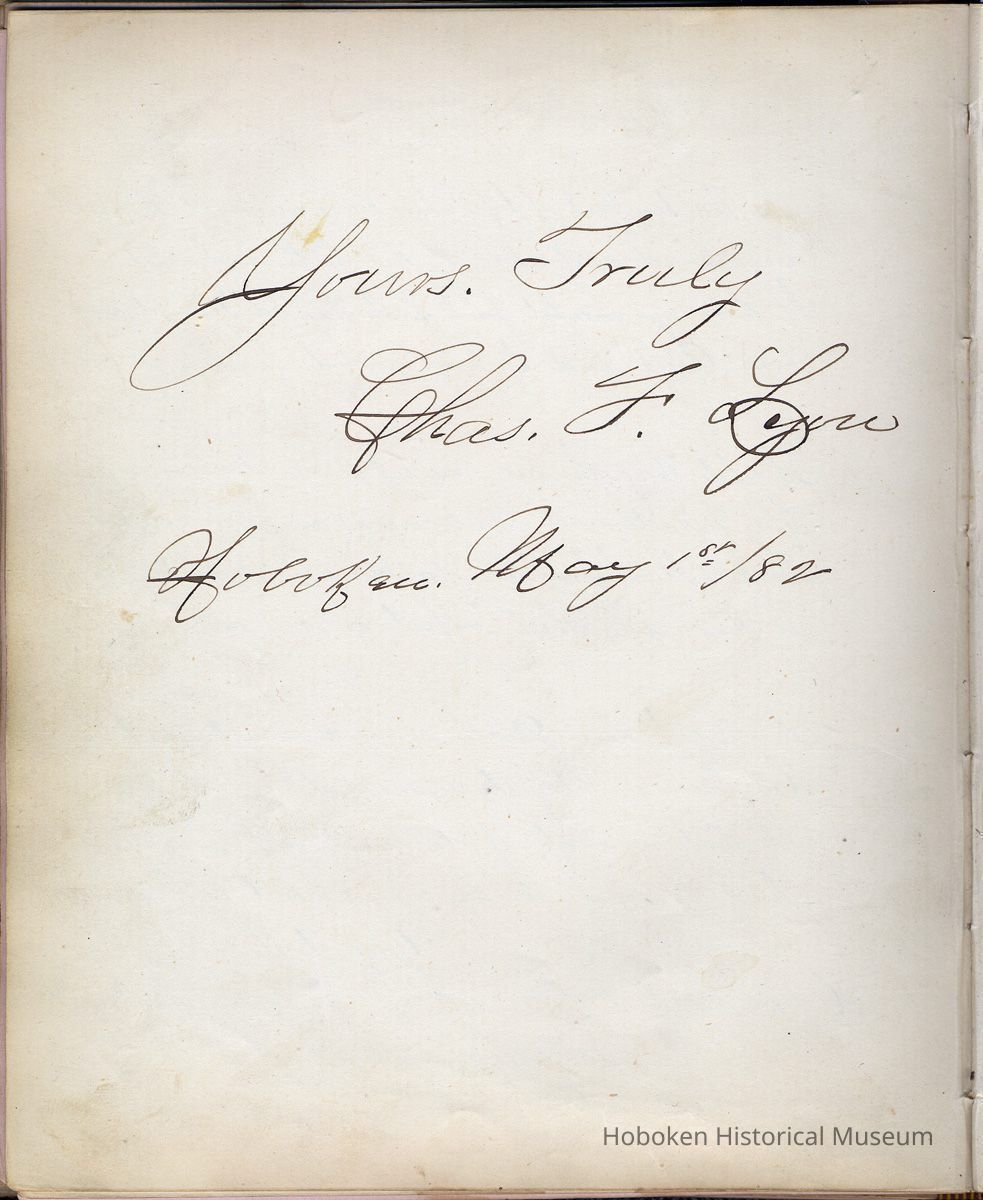 Yours. Truly
Chas. F. Lyon
Hoboken. May 1st/82
Hoboken Historical Museum